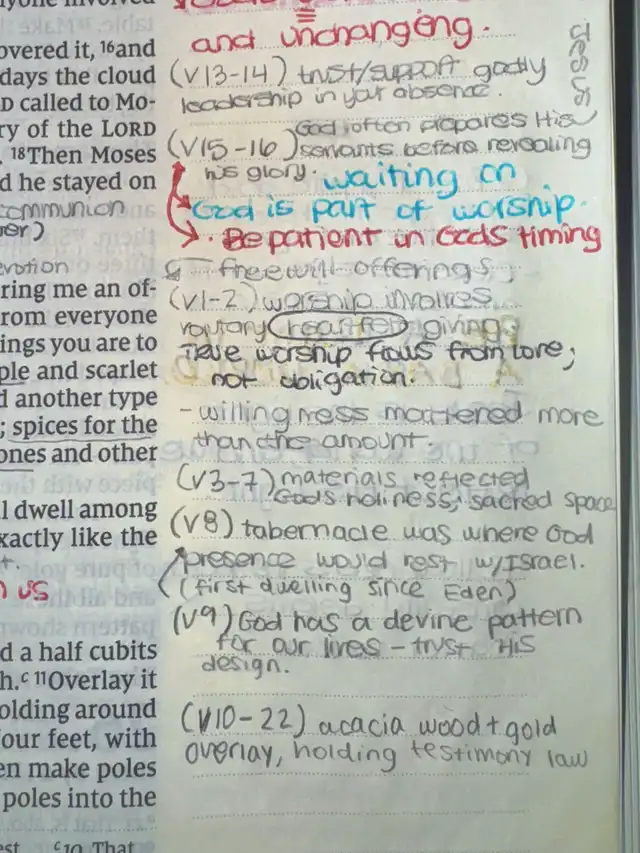 overed it, ¹⁶and
days the cloud
D called to Mo-
ry of the LORD
. ¹⁸Then Moses
d he stayed on
communion
er)
evotion
ring me an of-
rom everyone
ings you are to
ple and scarlet
d another type
; spices for the
ones and other
l dwell among
xactly like the
n us
d a half cubits
h.ᶜ ¹¹Overlay it
olding around
our feet, with
en make poles
poles into the
ᶜ10 That
and unchangeng.
Jesus
(V13-14) trust/support godly
leadership in your absence.
(V15-16) God often prepares His
servants before revealing
his glory. waiting on
God is part of worship.
• Be patient in Gods timing
freewill offerings;
(V1-2) worship involves
voultary heartfelt giving.
True worship flows from love;
not obligation.
- willingness mattered more
than the amount.
(V3-7) materials reflected
God's holiness; sacred space
(V8) tabernacle was where God
presence would rest w/Israel.
(first dwelling since Eden)
(V9) God has a devine pattern
for our lives - trust His
design.
(V10-22) acacia wood + gold
overlay, holding testimony law